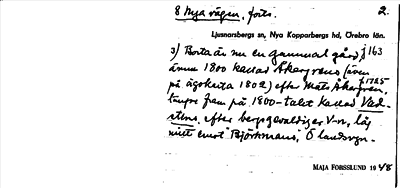 8 Nya vägen, forts. 2.
Ljusnarsbergs sn, Nya Kopparbergs hd, Örebro län.
3) Borta är nu en gammal gård, f 163
ännu 1800 kallad Åkergrens (även
på ägokarta 1802) efter Mats Åkergren, f 1725
längre fram på 1800-talet kallad Wad-
stens, efter bergsgevaldiger V-n, låg
mitt emot "Björkmans", Ö landsvgn.
MAJA FORSSLUND 1948